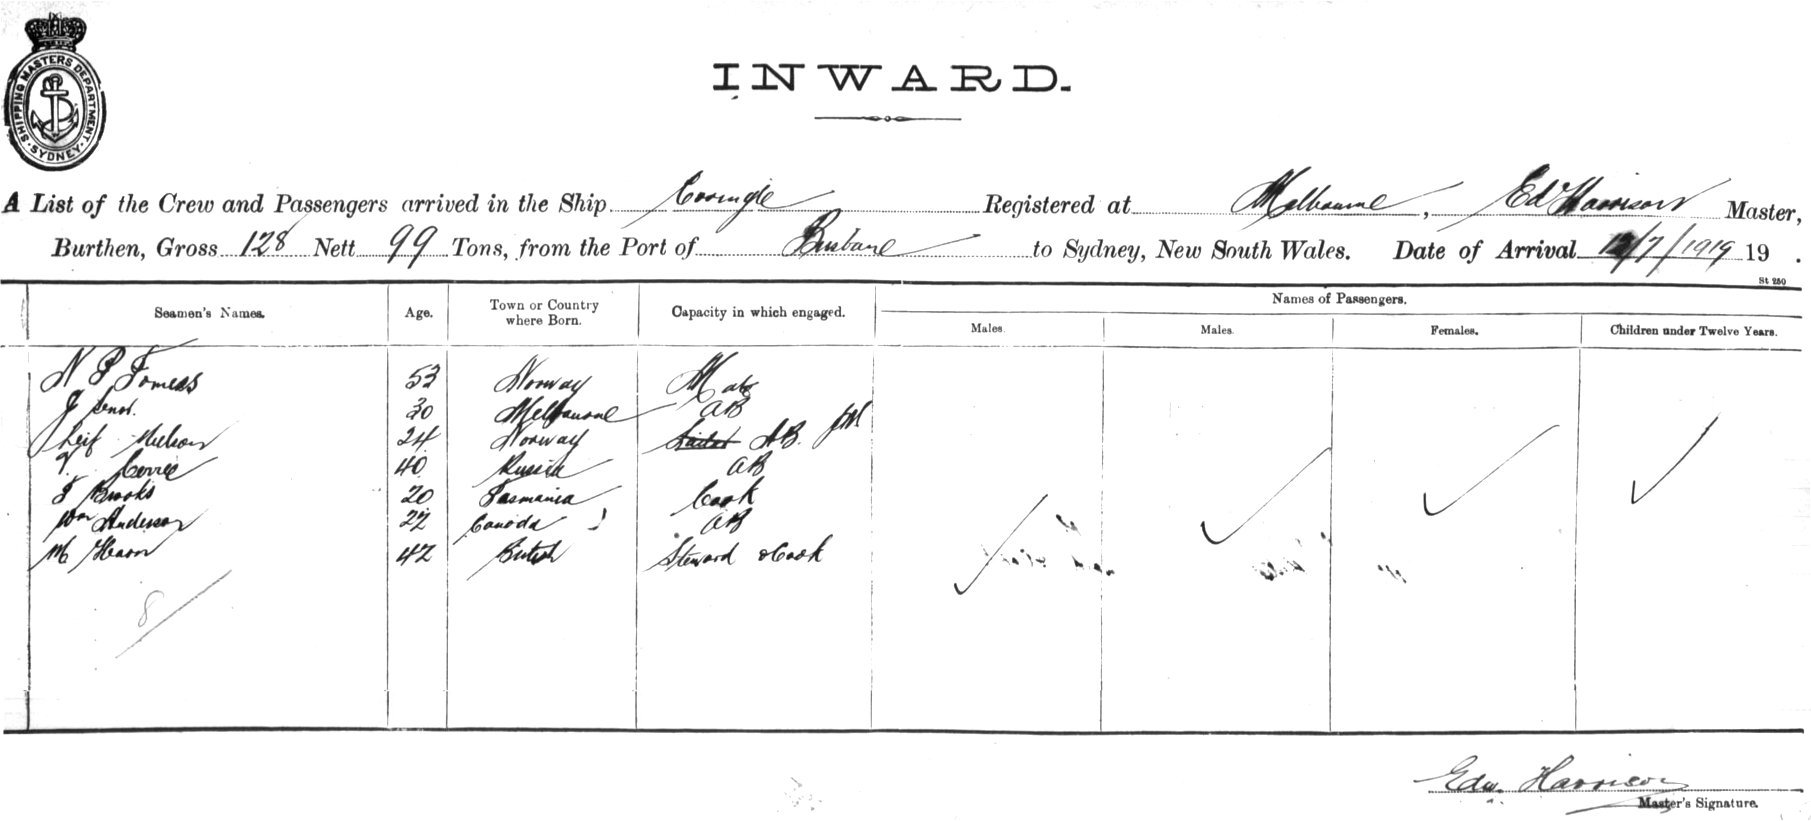 SHIPPING MASTERS DEPARTMENT
SYDNEY
INWARD.
A List of the Crew and Passengers arrived in the Ship Coringle Registered at Melbourne, Ed Harrison Master,
Burthen, Gross 128 Nett 99 Tons, from the Port of Brisbane to Sydney, New South Wales. Date of Arrival 12/7/1919 19 .
St 250
Seamen's Names. Age. Town or Country where Born. Capacity in which engaged. Names of Passengers.
Males. Males. Females. Children under Twelve Years.
N P 53 Norway Mate
J 30 Melbourne AB
Leif Nielson 24 Norway AB JM
40 Russia AB
F Brooks 20 Tasmania Cook
Wm Anderson 22 Canada AB
M Hearn 42 British Steward & Cook
8
Edw. Harrison
Master's Signature.